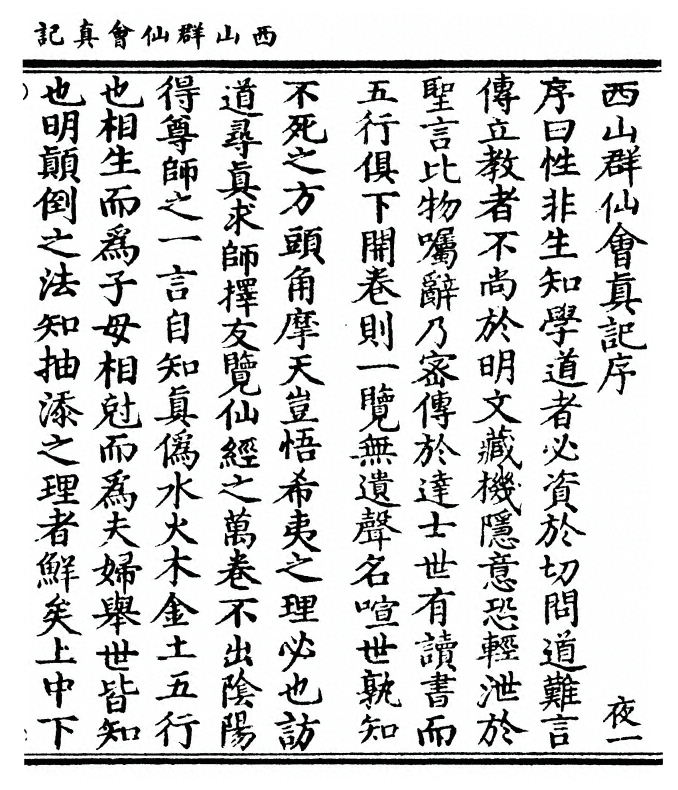 西山群仙會真記
西山群仙會真記序
夜一
序曰性非生知學道者必資於切問道難言
傳立教者不尚於明文藏機隱意恐輕泄於
聖言比物囑辭乃密傳於達士世有讀書而
五行俱下開卷則一覽無遺聲名喧世孰知
不死之方頭角摩天豈悟希夷之理必也訪
道尋真求師擇友覽仙經之萬卷不出陰陽
得尊師之一言自知真僞水火木金土五行
也相生而爲子母相尅而爲夫婦舉世皆知
也明顛倒之法知抽添之理者鮮矣上中下